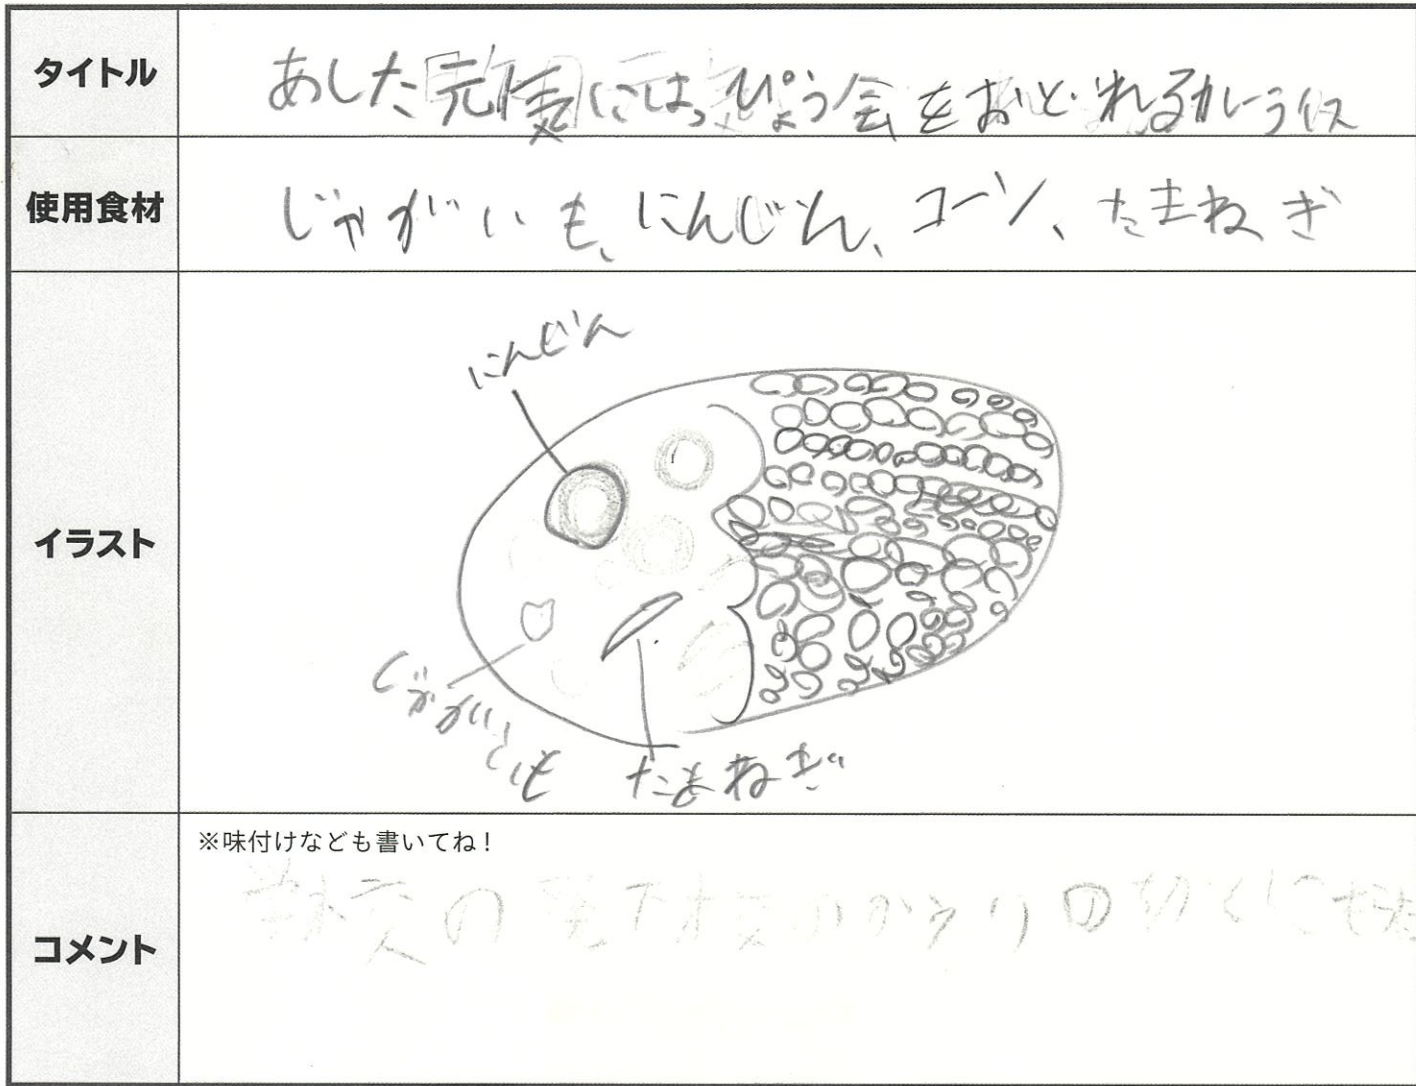 タイトル
あした元気にはっぴょう会をおどれるカレーライス
使用食材
じゃがいも、にんじん、コーン、たまねぎ
イラスト
にんじん
じゃがいも
たまねぎ
コメント
※味付けなども書いてね！